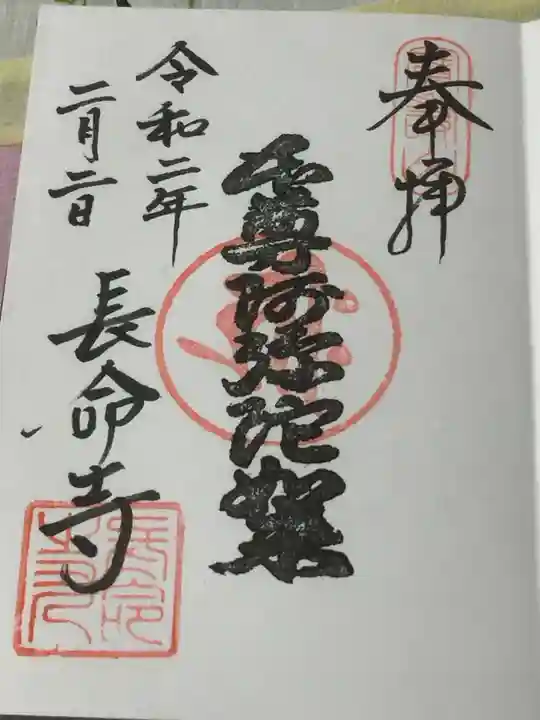 奉拝
千尊阿弥陀如来
令和二年
二月二日
長命寺